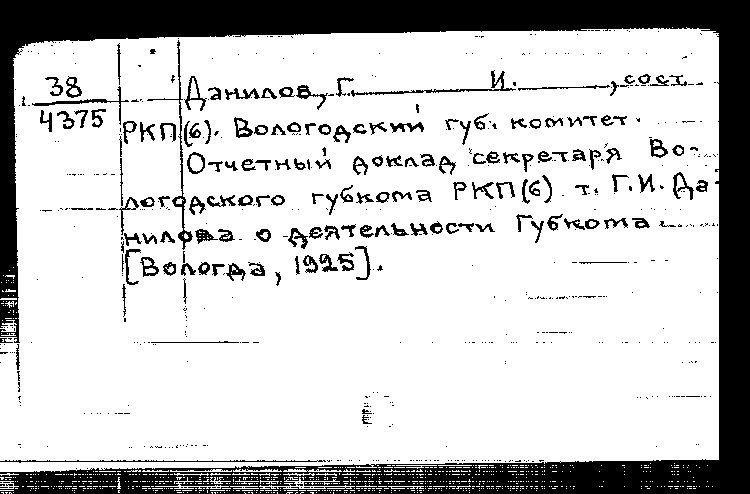 38
4375
Данилов, Г. И. , сост.
РКП(б). Вологодский губ. комитет.
Отчетный доклад секретаря Во-
логодского губкома РКП(б) т. Г.И. Да-
нилова о деятельности Губкома.
[Вологда, 1925].